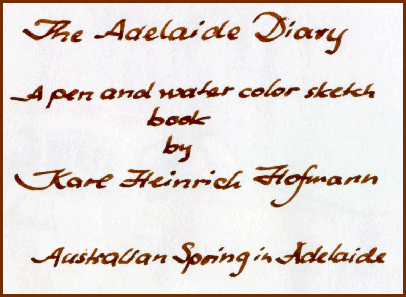 The Adelaide Diary
A pen and water color sketch
book
by
Karl Heinrich Hofmann
Australian Spring in Adelaide